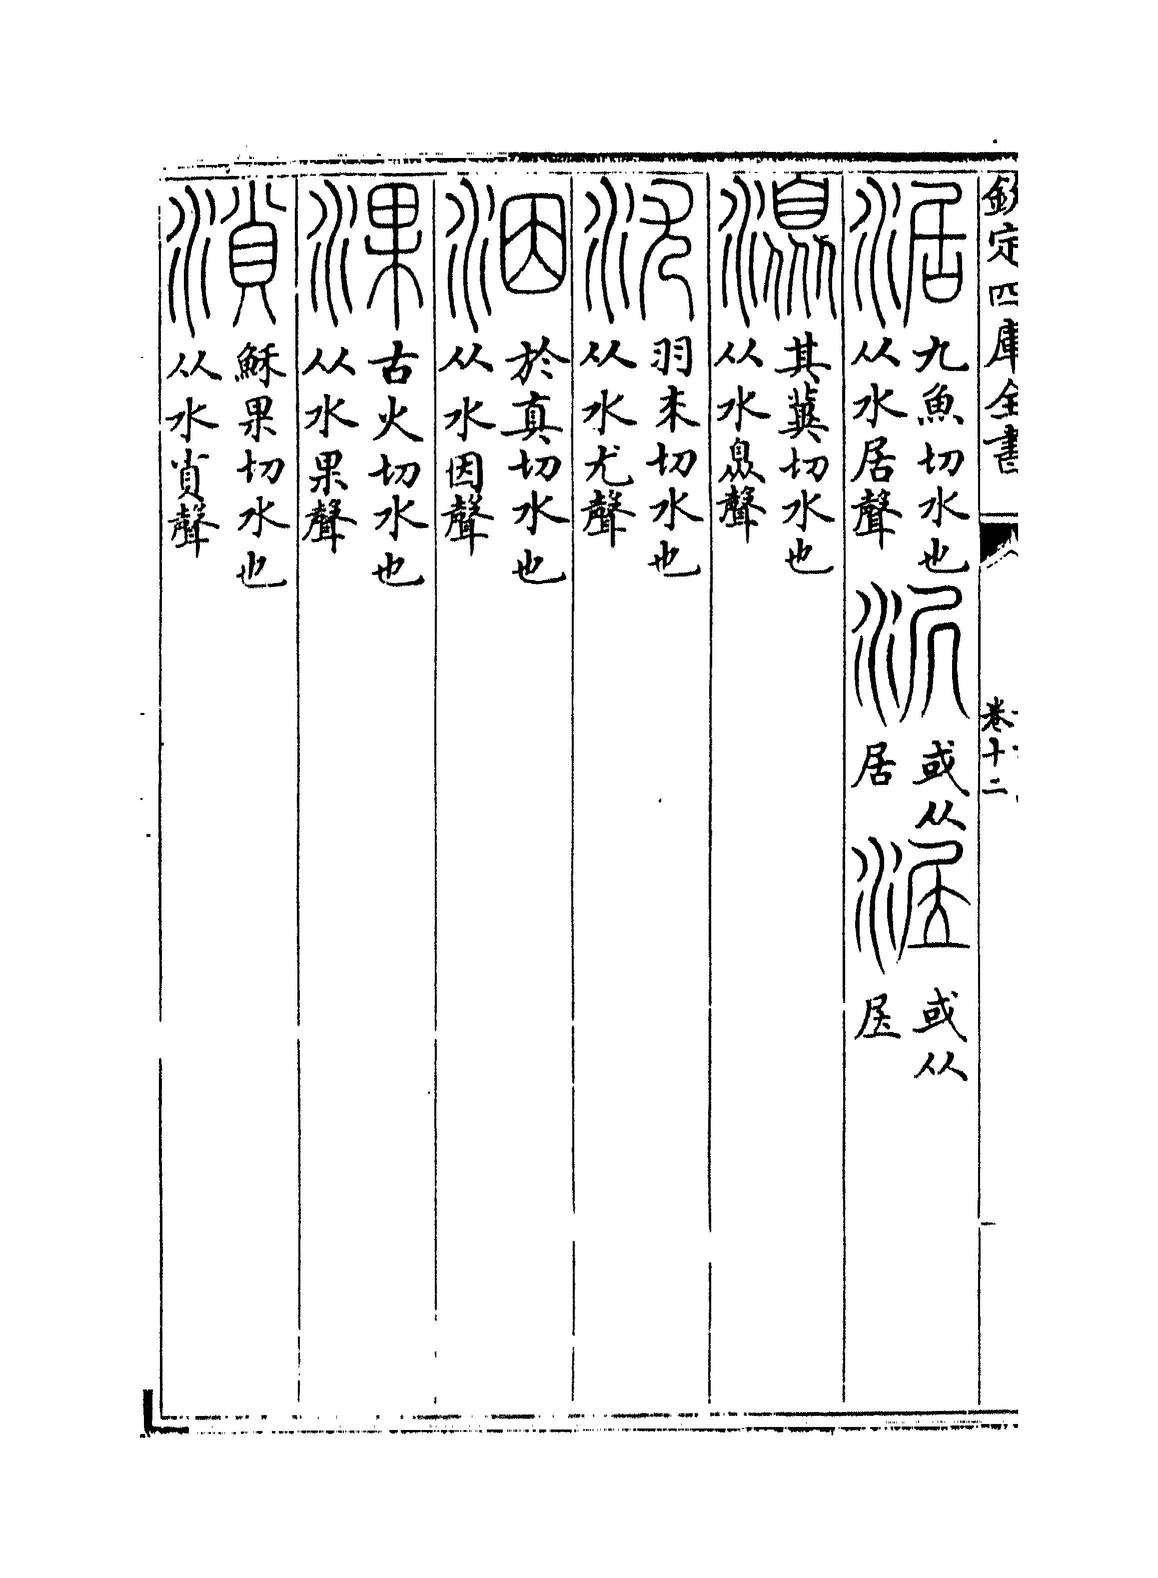 欽定四庫全書
卷十二
涺 九魚切水也从水居聲 㲹 或从居 𣵠 或从㞐
濞 其冀切水也从水臮聲
沋 羽求切水也从水尤聲
洇 於真切水也从水因聲
淉 古火切水也从水果聲
溑 穌果切水也从水𧴪聲